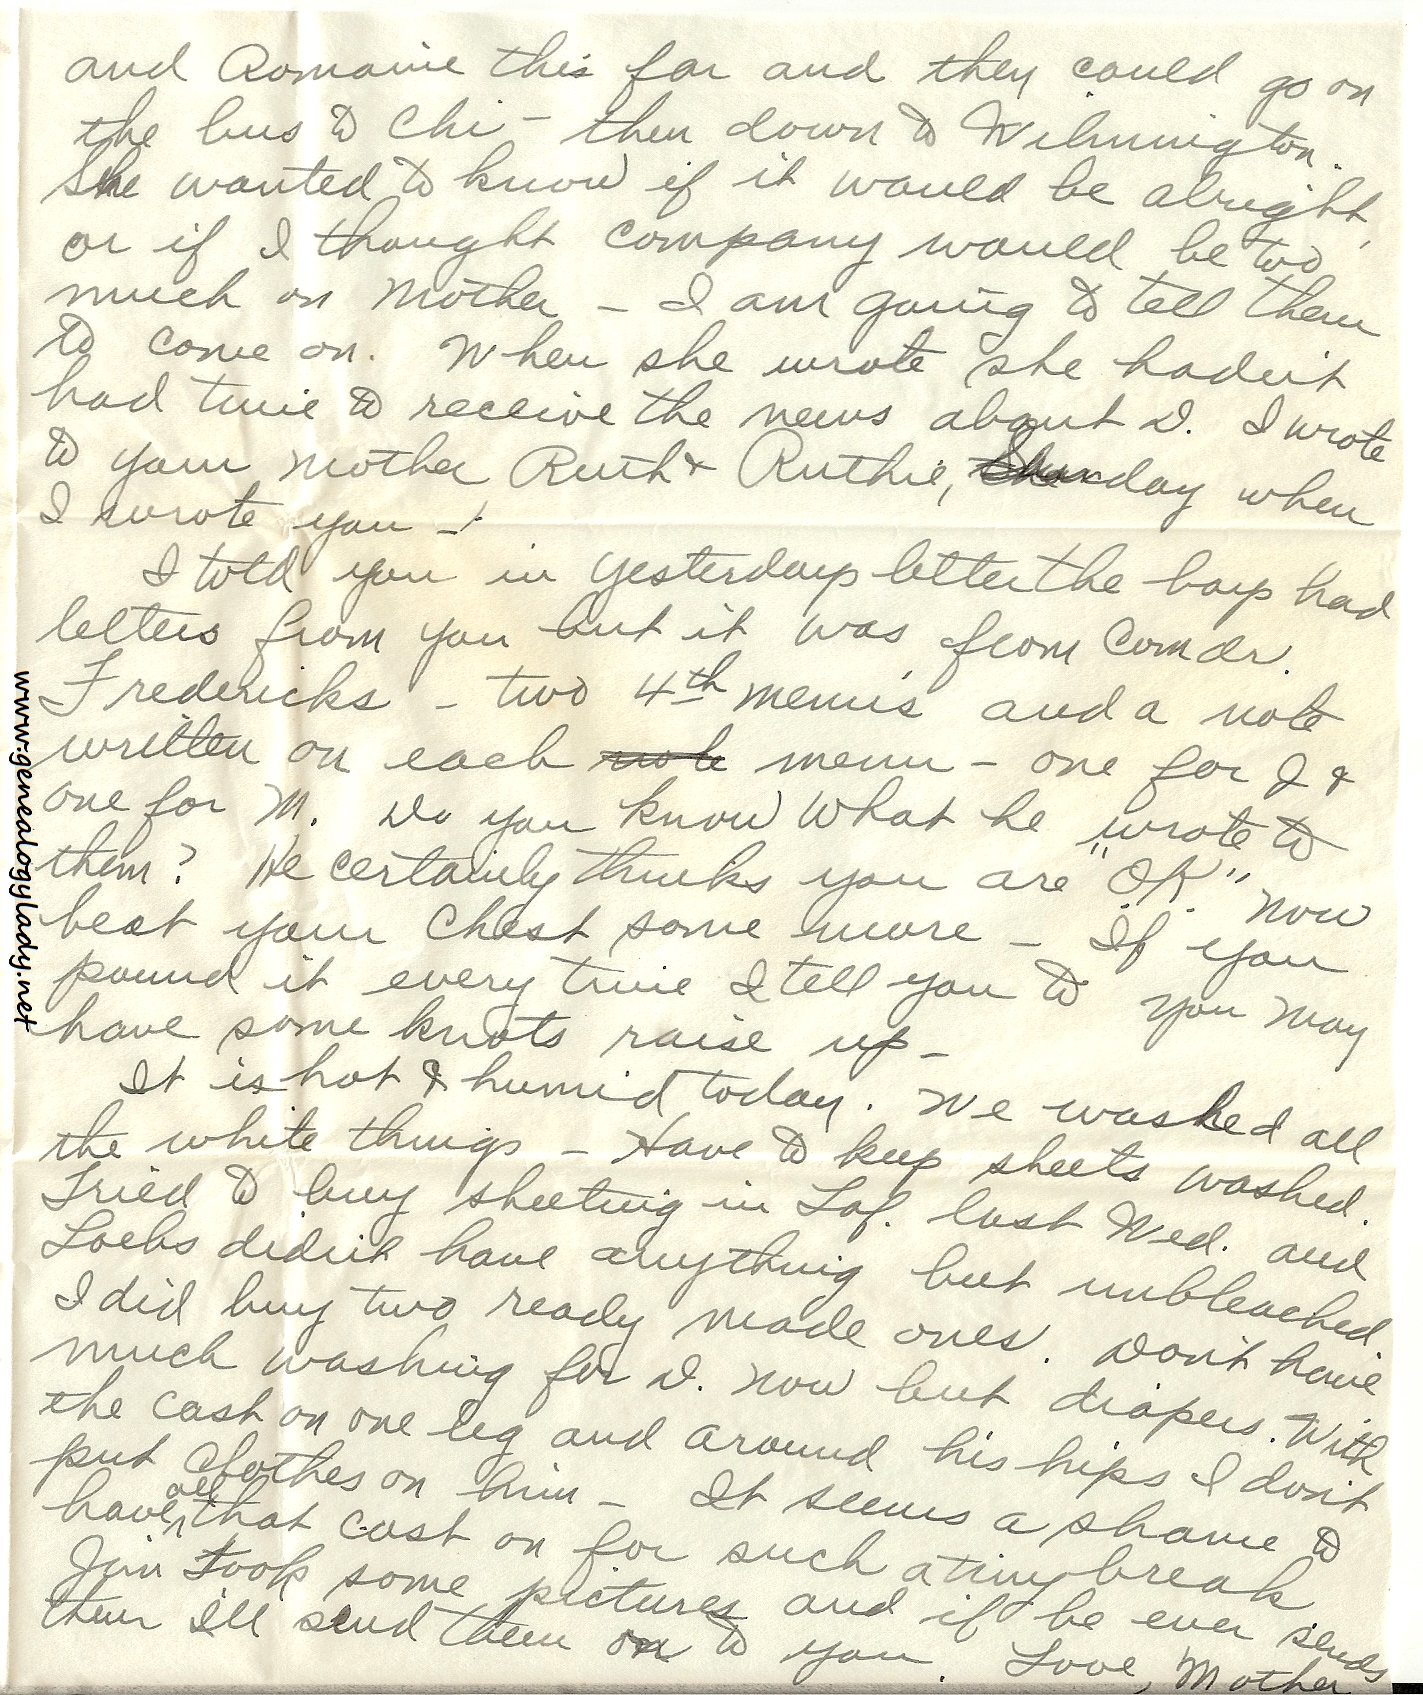 and Romaine this far and they could go on
the bus to Chi – then down to Wilmington.
She wanted to know if it would be alright,
or if I thought company would be too
much on Mother – I am going to tell them
to come on. When she wrote she hadn't
had time to receive the news about D. I wrote
to your mother Ruth & Ruthie, day when
I wrote you –
I told you in yesterdays letter the boys had
letters from you but it was from Comdr.
Fredericks – two 4th menus and a note
written on each note menu – one for J &
one for M. Do you know what he wrote to
them? He certainly thinks you are "OK." Now
beat your chest some more – If you
pound it every time I tell you to you may
have some knots raise up –
It is hot & humid today. We washed all
the white things – Have to keep sheets washed.
Tried to buy sheeting in Laf. last Wed. and
Loebs didn't have anything but unbleached.
I did buy two ready made ones. Don't have
much washing for D. now but diapers. With
the cast on one leg and around his hips I don't
put clothes on him – It seems a shame to
have all that cast on for such a tiny break
Jim took some pictures and if he ever sends
them I'll send them on to you. Love, Mother
www.genealogylady.net